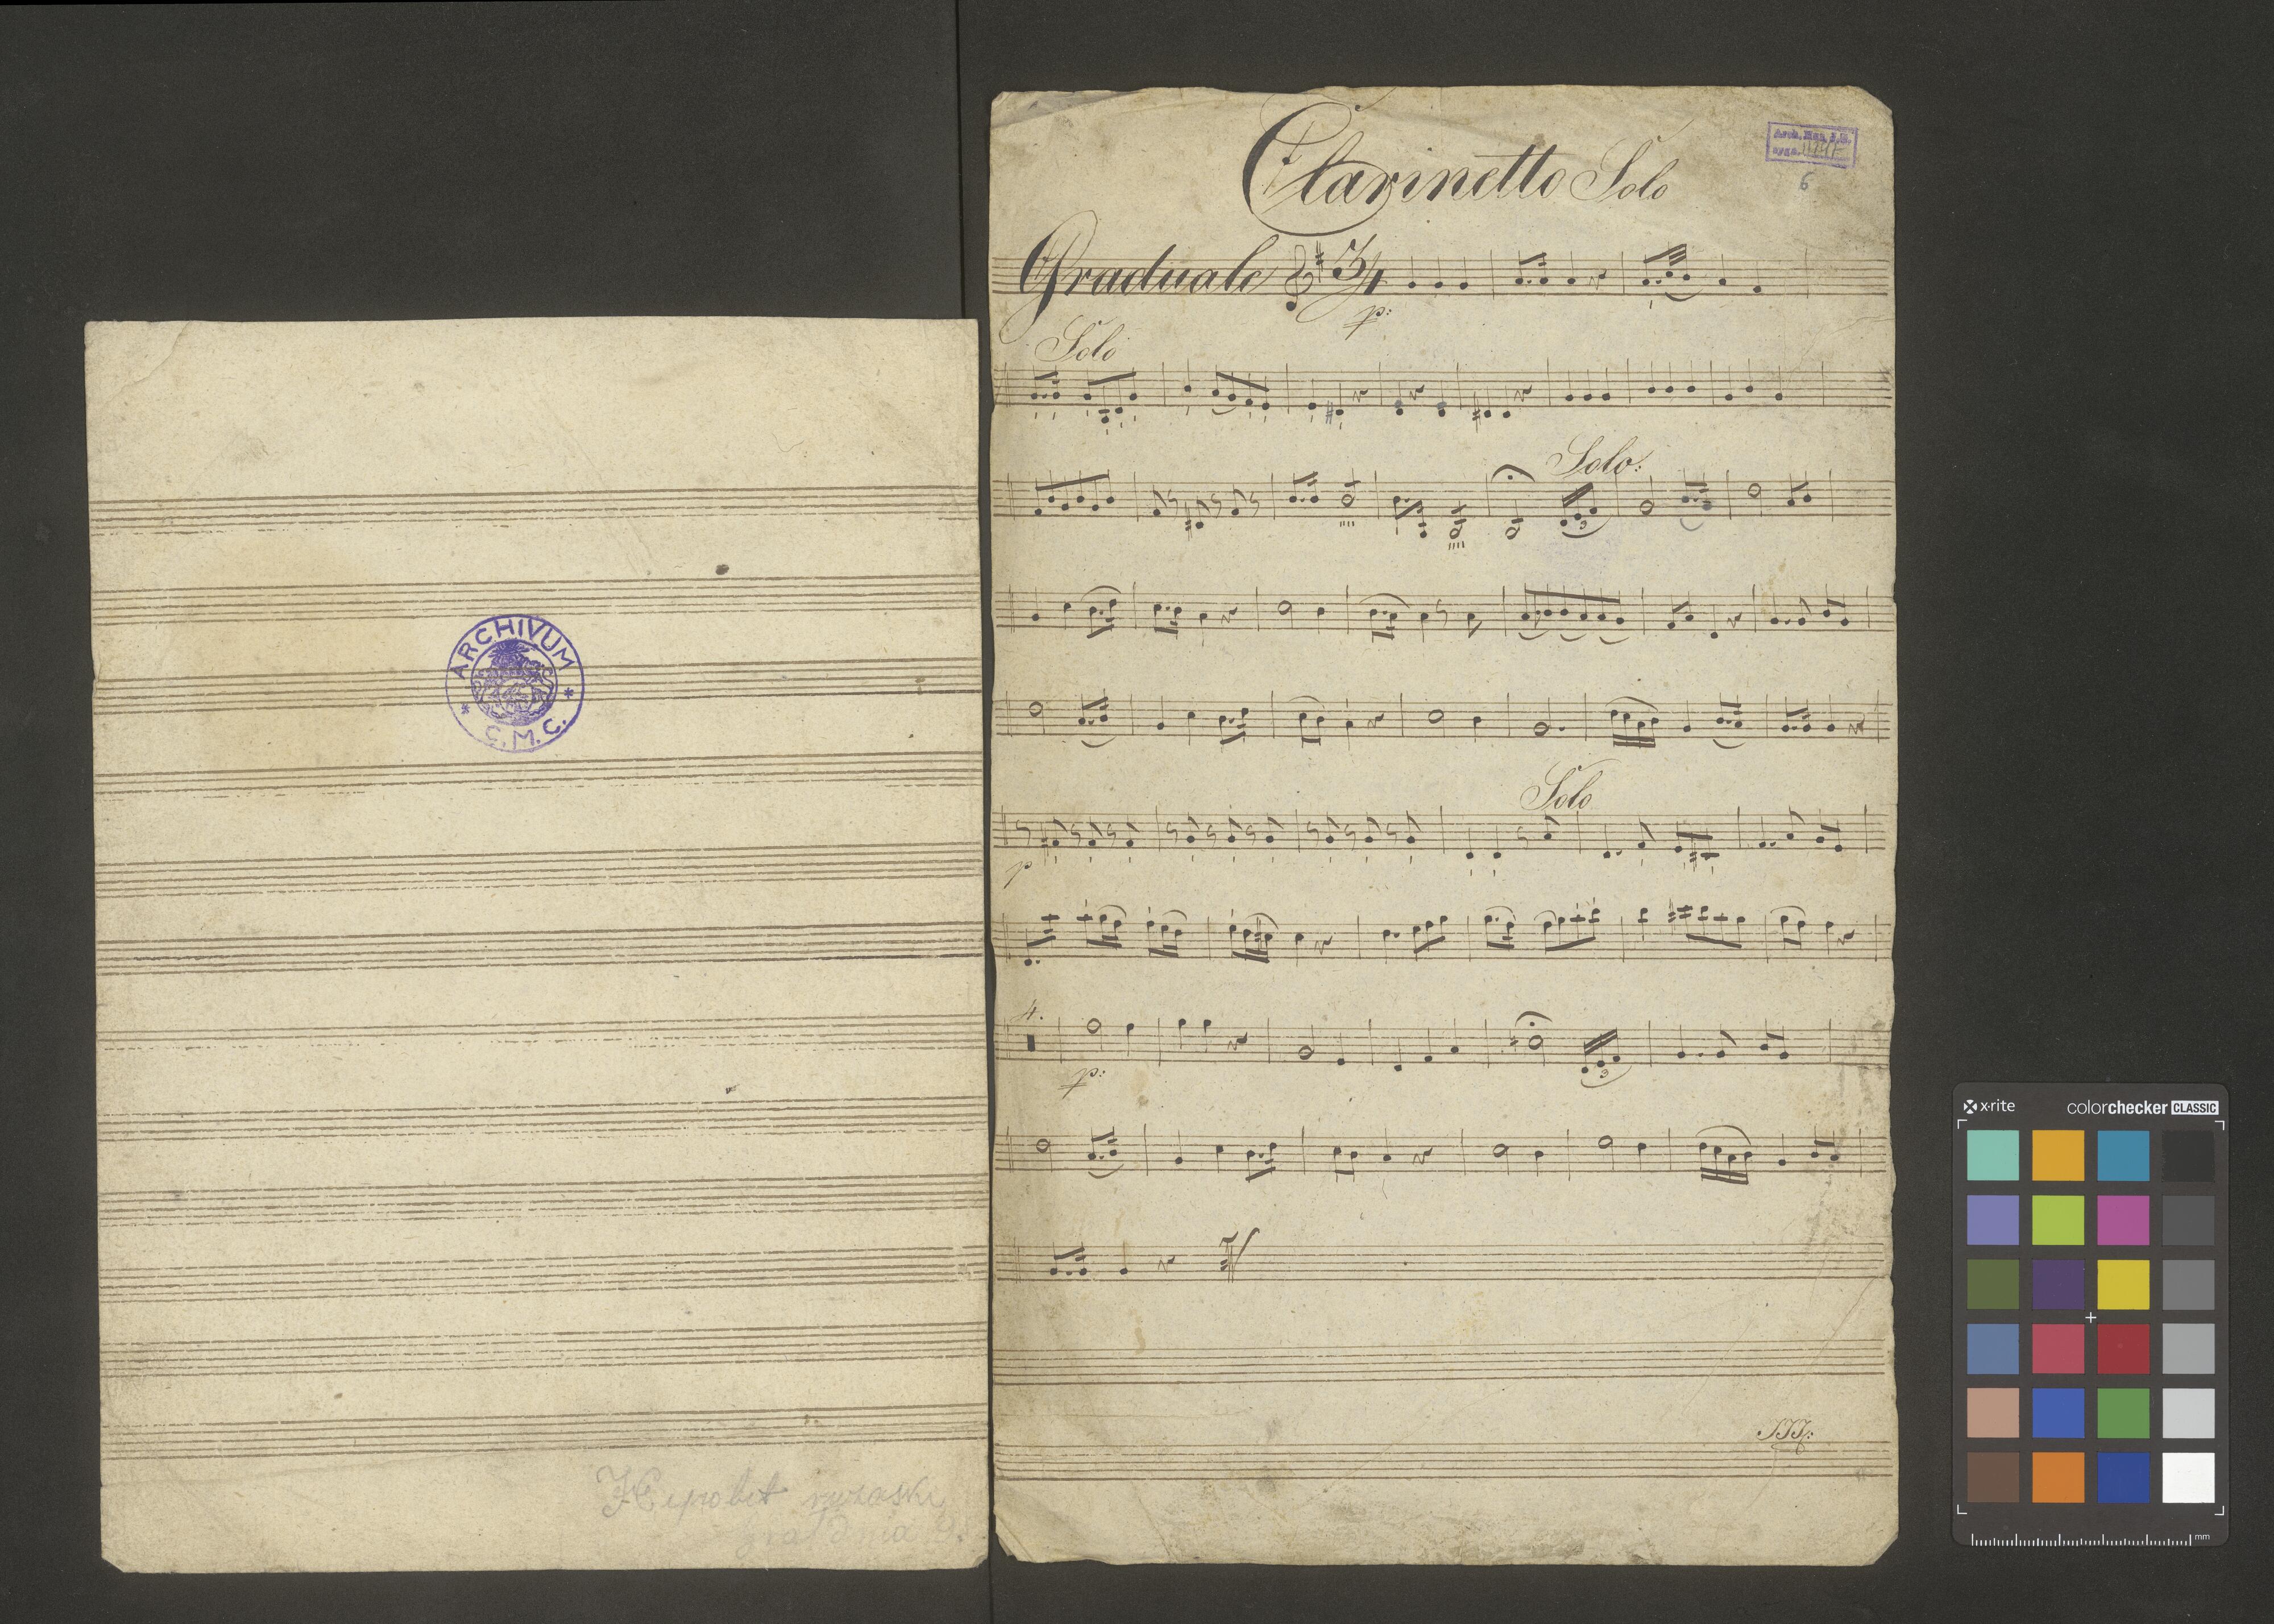 ARCHIVUM
C. M. C.
Clarinetto Solo
6
Graduale 3/4
p:
Solo
Solo:
3
Solo
p
4.
p:
3
x-rite colorchecker CLASSIC
mm